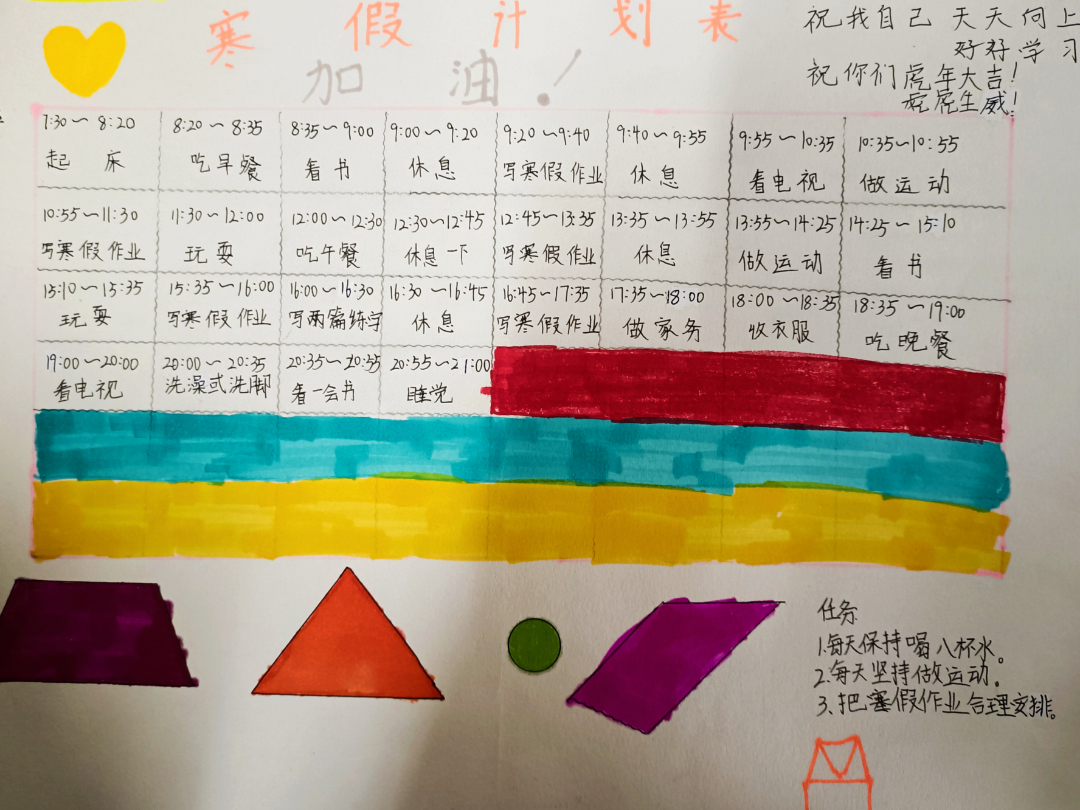 寒假计划表
加油！
祝我自己天天向上
好好学习
祝你们虎年大吉！
虎虎生威！
7:30～8:20 8:20～8:35 8:35～9:00 9:00～9:20 9:20～9:40 9:40～9:55 9:55～10:35 10:35～10:55
起床 吃早餐 看书 休息 写寒假作业 休息 看电视 做运动
10:55～11:30 11:30～12:00 12:00～12:30 12:30～12:45 12:45～13:35 13:35～13:55 13:55～14:25 14:25～15:10
写寒假作业 玩耍 吃午餐 休息一下 写寒假作业 休息 做运动 看书
15:10～15:35 15:35～16:00 16:00～16:30 16:30～16:45 16:45～17:35 17:35～18:00 18:00～18:35 18:35～19:00
玩耍 写寒假作业 写两篇练字 休息 写寒假作业 做家务 收衣服 吃晚餐
19:00～20:00 20:00～20:35 20:35～20:55 20:55～21:00
看电视 洗澡或洗脚 看一会书 睡觉
任务
1.每天保持喝八杯水。
2.每天坚持做运动。
3、把寒假作业合理安排。